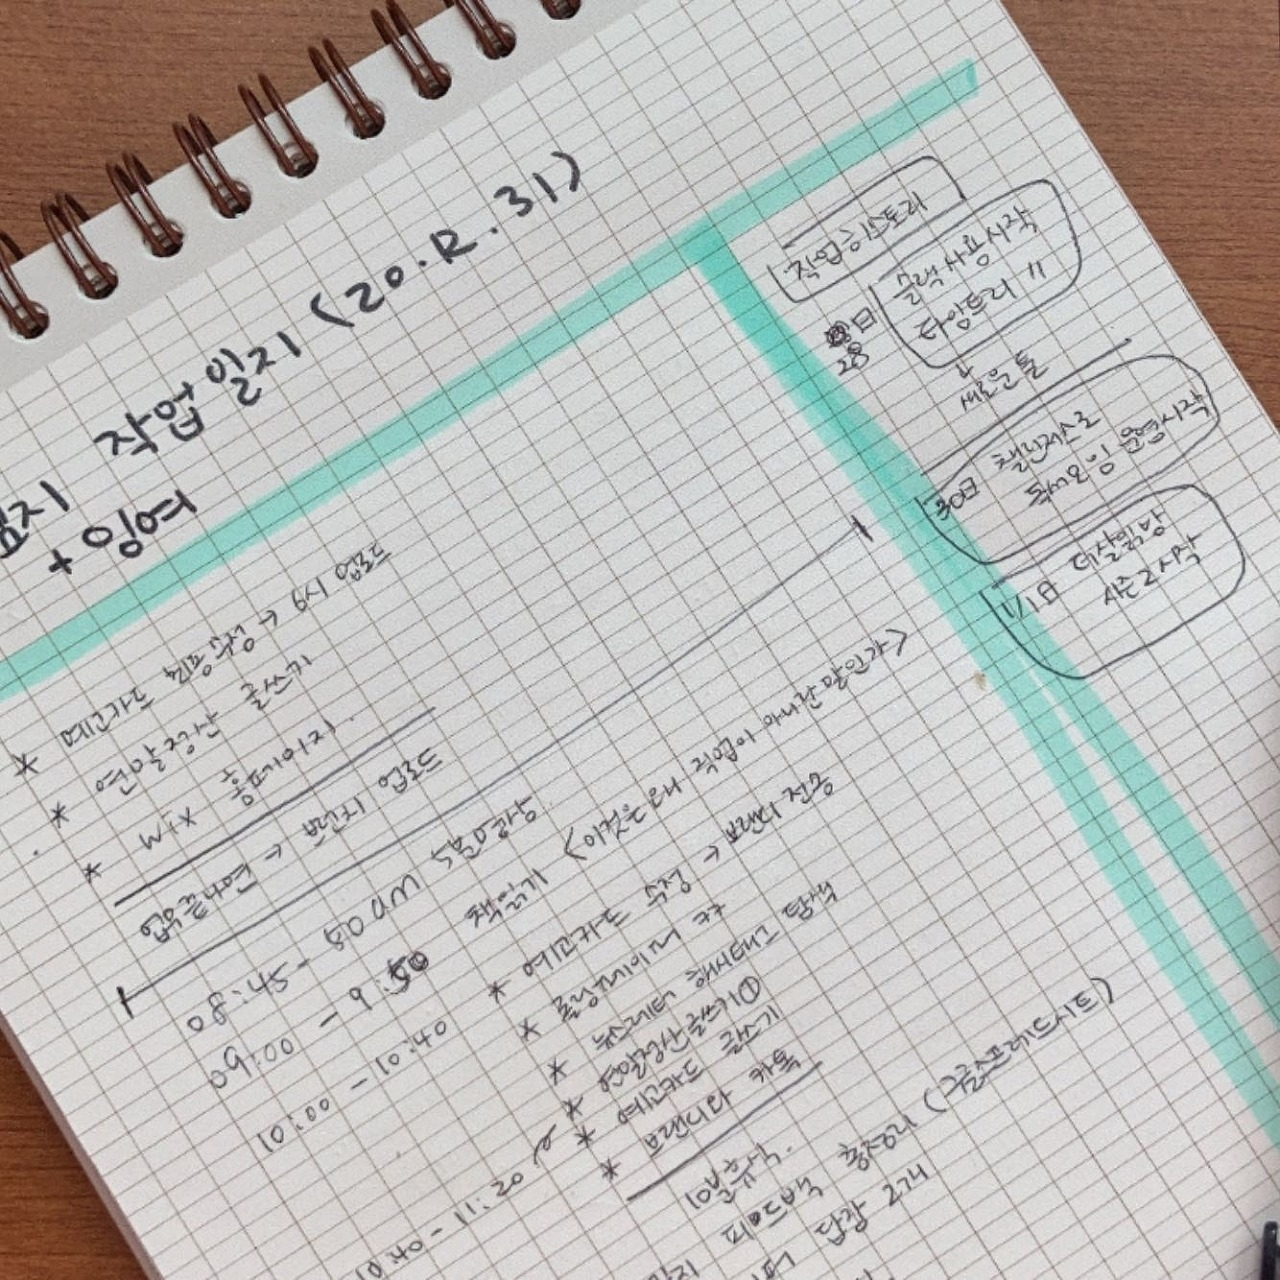 작업 일지 (20.12.31)
+ 잉여
* 예고카드 뒷장 수정 → 6시 업로드
* 연말정산 글쓰기
* wix 홈페이지.
업무끝나면 → 브런치 업로드
08:45 - 8:50 AM 5분명상
09:00 - 9:50 책읽기 <이것은 왜 직업이 아니란 말인가>
10:00 - 10:40 * 예고카드 수정 → 브랜디 전송
* 롤링페이퍼
* 뉴스레터 해시태그 탐색
* 연말정산글쓰기①
* 예고카드 글쓰기
* 브랜디와 카톡
10:40 - 11:20
10분휴식.
피드백 총정리 (구글스프레드시트)
답장 2개
작업히스토리
28日 슬랙 사용시작
다암트리 "
↳ 새로운 툴
30日 챌린저스로
독서모임 운영시작
1/1日 데살읽방
시즌2시작